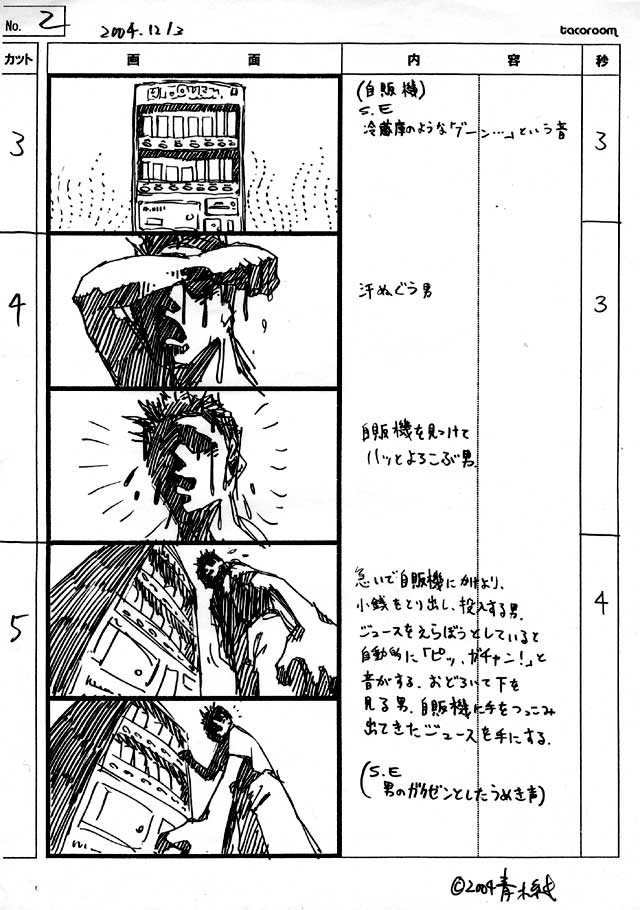 No. 2
2004.12/3
tacoroom
カット
画 面
内 容
秒
3
(自販機)
S.E
冷蔵庫のような「ブーン…」という音
3
4
汗ぬぐう男
3
自販機を見つけて
ハッとよろこぶ男.
5
急いで自販機にかけより、
小銭をとり出し、投入する男.
ジュースをえらぼうとしていると
自動的に「ピッ、ガチャン!」と
音がする. おどろいて下を
見る男. 自販機に手をつっこみ
出てきたジュースを手にする.
(S.E
男のガクゼンとしたうめき声)
4
©2004 青木純